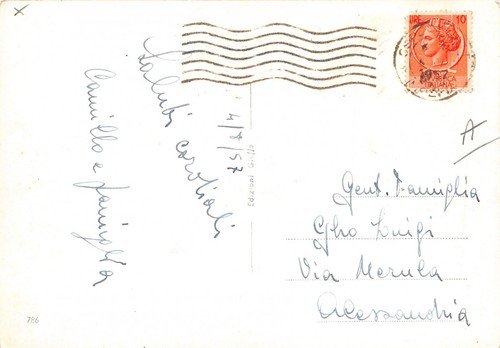 x
LIRE 10
1957
A
4/8/57
Saluti cordiali
Camillo e famiglia
Gent. Famiglia
Gho Luigi
Via Merula
Alessandria
786